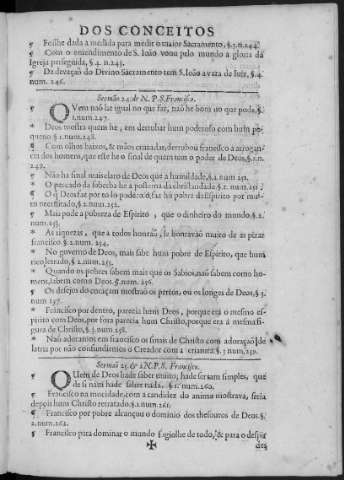 DOS CONCEITOS
¶ Foilhe dada a medida para medir o maior Sacramento, §.3.n.244.
¶ Com o entendimento de S. Ioão voou pelo mundo a gloria da
Igreja perseguida, §.4.n.245.
¶ Da devação do Divino Sacramento tem S. Ioão a vara de §.4.
num.246.
Sermão 24. de N. P. S. Francisco.
¶ QVem não he igual no que faz, não he bom no que pode, §.
1.num.247.
* Deos mostra quem he, em derrubar hum poderoso com hum pequeno
§.1.num.248.
* Com olhos baixos, & mãos cruzadas, derrubou francisco a arrogan-
dos homens, que este he o sinal de quem tem o poder de Deos, §.1.n.
249.
¶ Não ha sinal mais claro de Deos que a humildade, §.2.num.250.
* O peccado da soberba he a postema da christandade §.2.num.251.
* O que Deos faz por todo poderoso, faz hũ pobre de Espirito por muito
necessitado, §.2.num.252.
¶ Mais pode a pobreza de Espirito, que o dinheiro do mundo, §.2.
num.253.
* As riquezas, que a todos honrão, se honravão muito de as pizar
francisco. §.2.num.254.
* No governo de Deos, mais sabe hum pobre de Espirito, que hum
rico letrado, §.2.num.255.
* Quando os pobres sabem mais que os Sabios, não sabem como ho-
mens, sabem como Deos. §.num.256.
¶ Os desejos do coraçam mostrão os pertos, ou os longes de Deos, §.3.
num.257.
* Francisco por dentro, parecia hum Deos, porque era o mesmo es-
pirito com Deos, por fora parecia hum Christo, porque era a mesma fi-
gura de Christo, §.3.num.258.
* Não adoramos em francisco os sinais de Christo com adoração de
latria por não confundirmos o Creador com a criatura. §.3.num.259.
Sermão 25. de N. P. S. Francisco.
¶ QUem de Deos hade saber muito, hade ser tam simples, que
de si nam hade saber nada. §.1.num.260.
* Francisco na mocidade, com a candidez do animo mostrava, seria
depois hum Christo retratado. §.1.num.261.
¶ Francisco por pobre alcançou o dominio dos thesouros de Deos. §.
2.num.262.
¶ Francisco para dominar o mundo fogiolhe de todo, & para o despir
✠